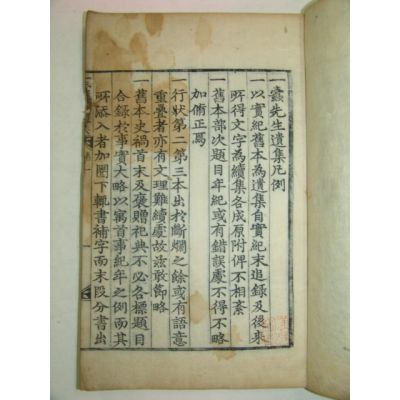 一蠹先生遺集凡例
一以實紀舊本為遺集自實紀末追錄及後來
所得文字為續集各成原附俾不相紊
一舊本部次題目年紀或有錯誤處不得不略
加脩正焉
一行狀第二第三本出於斷爛之餘或有語意
重疊者亦有文理難續處故玆敢節略
一舊本史禍首末及褒贈祀典不必各標題目
合錄於事實大略以寓首事紀年之例而其
所添入者加圈下輒書補字而末段分書出